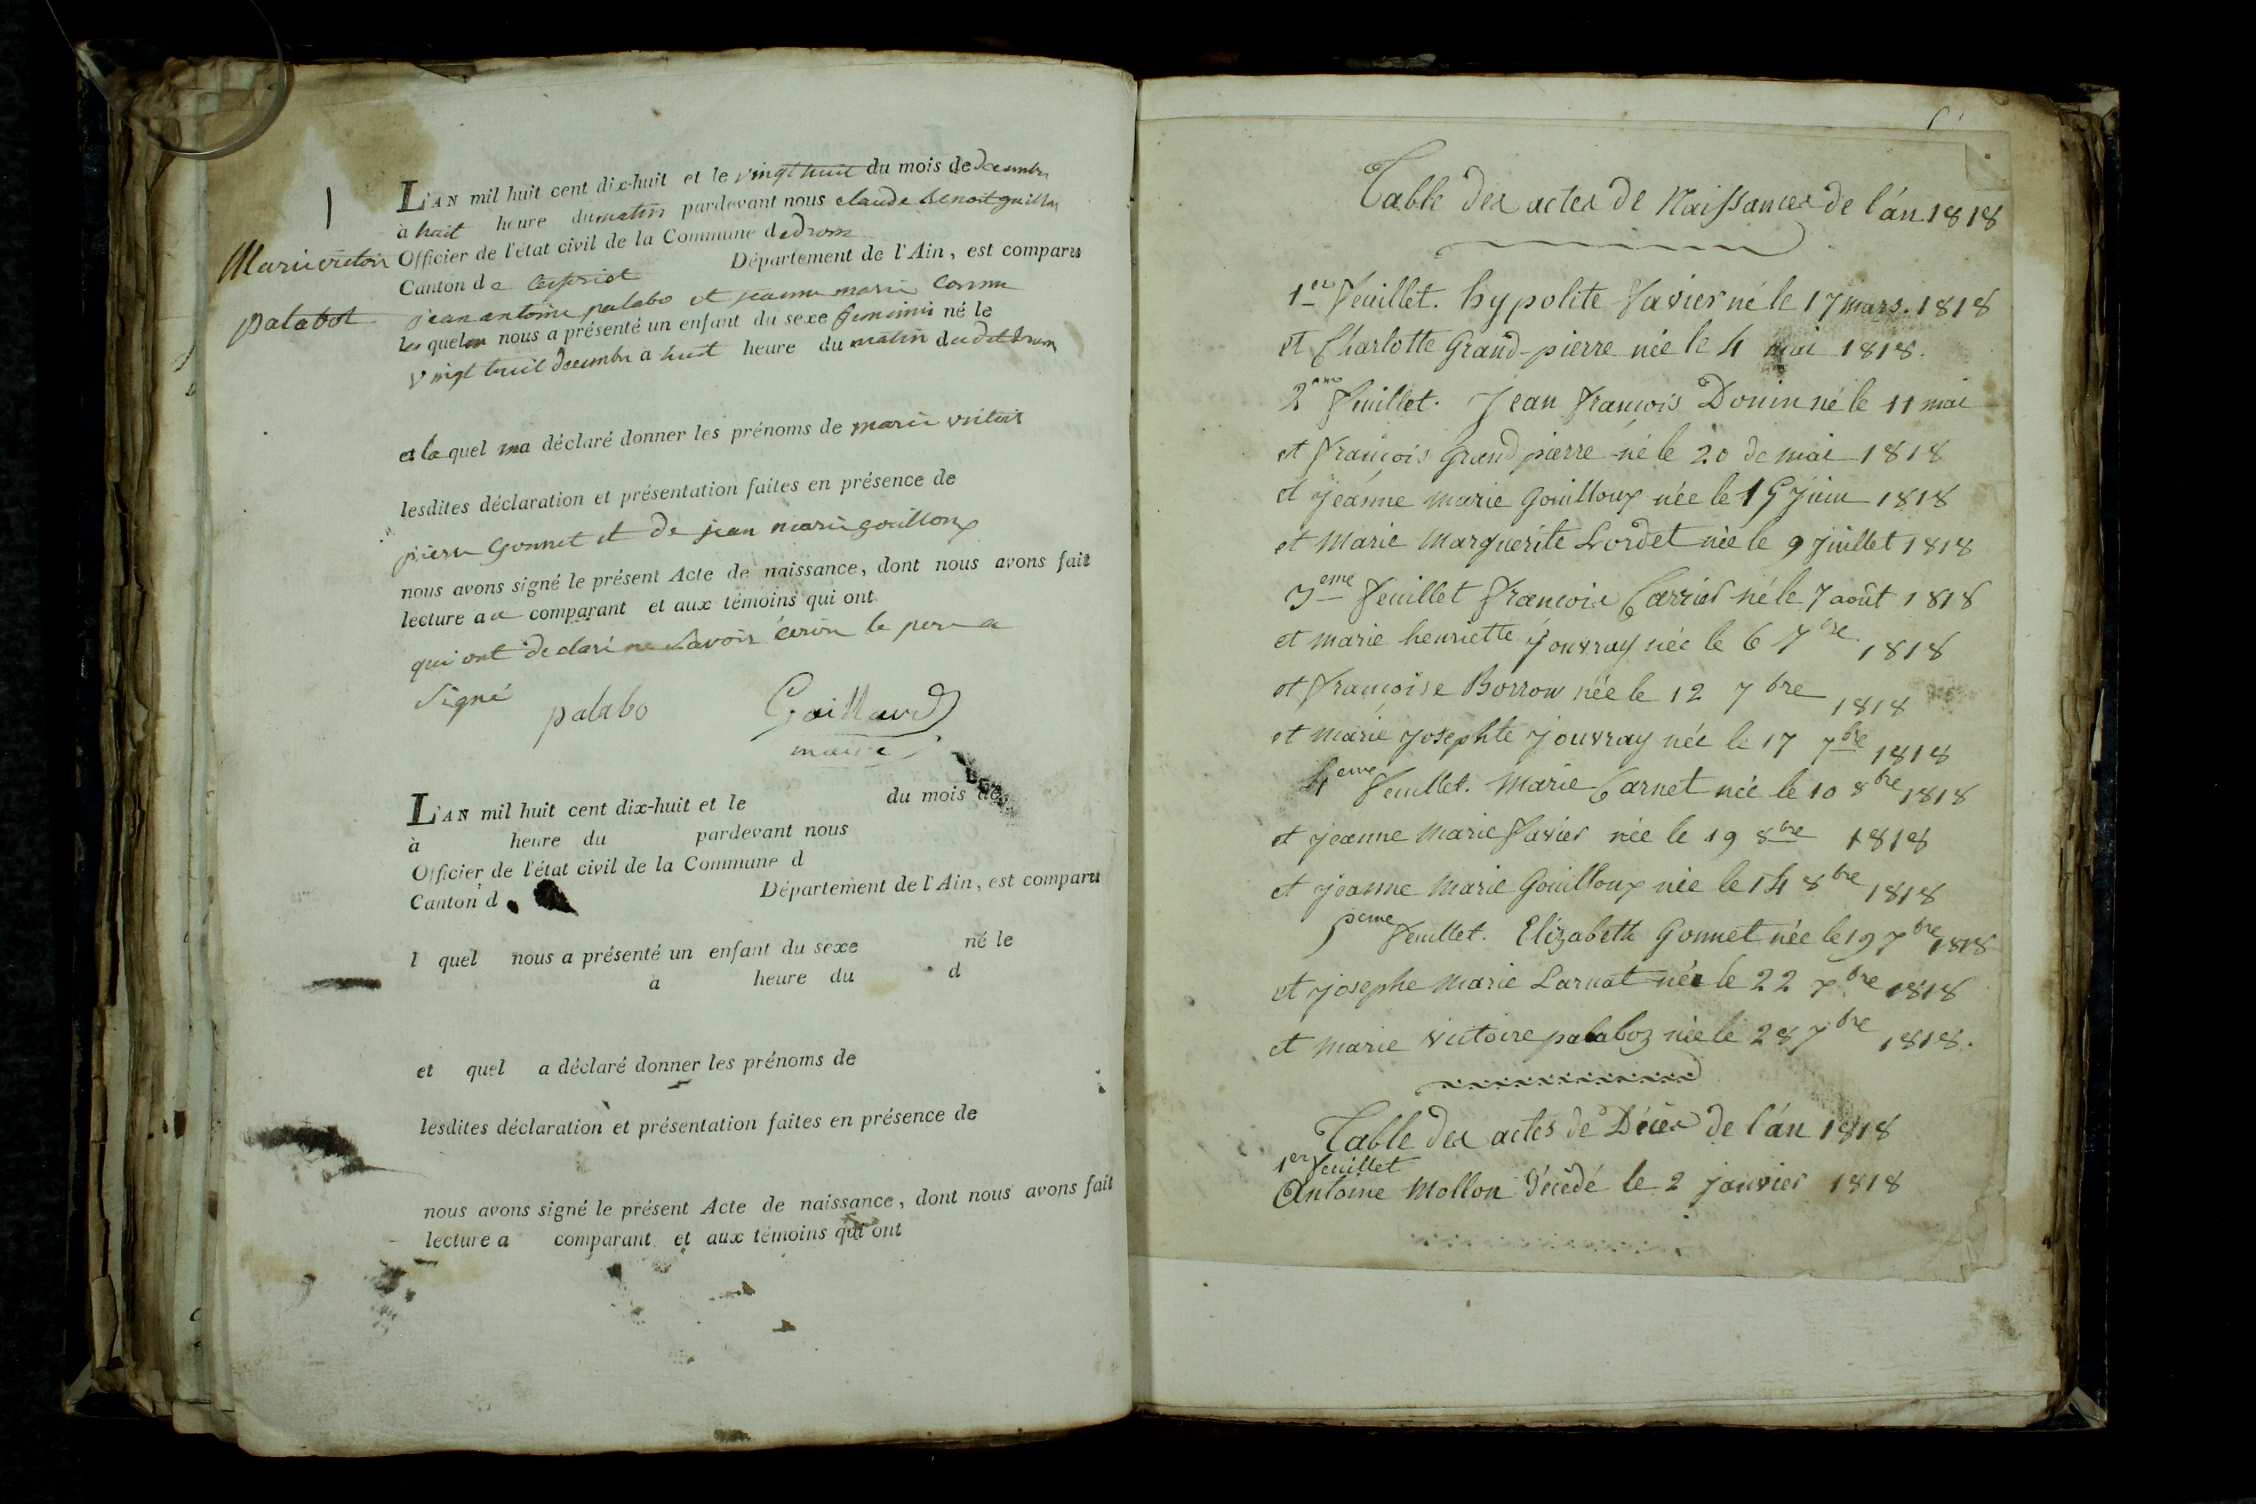 Marie victoir
palabot
L'AN mil huit cent dix-huit et le vingt huit du mois de decembre
à huit heure du matin pardevant nous claude benoit
Officier de l'état civil de la Commune de drom
Canton de Département de l'Ain, est comparu
jean antoine palabo et jeanne marie
les quel nous a présenté un enfant du sexe feminin né le
vingt huit decembre à huit heure du matin du dit drom
et la quel ma déclaré donner les prénoms de marie victoir
lesdites déclaration et présentation faites en présence de
pierre Gonnet et de jean marie gouilloux
nous avons signé le présent Acte de naissance, dont nous avons fait
lecture au comparant et aux témoins qui ont
qui ont declaré ne Savoir écrire le pere a
Signé
palabo Gaillard
maire
L'AN mil huit cent dix-huit et le du mois de
à heure du pardevant nous
Officier de l'état civil de la Commune d
Canton d Département de l'Ain, est comparu
l quel nous a présenté un enfant du sexe né le
a heure du d
et quel a déclaré donner les prénoms de
lesdites déclaration et présentation faites en présence de
nous avons signé le présent Acte de naissance, dont nous avons fait
lecture a comparant et aux témoins qui ont
Table des actes de Naissances de l'an 1818
1er feuillet. hypolite Favier né le 17 mars. 1818
et Charlotte Grand-pierre née le 4 mai 1818.
2eme feuillet. Jean François Donin né le 11 mai
et François Grand pierre né le 20 de mai 1818
et jeanne marie Gouilloux née le 15 juin 1818
et Marie Marguerite Lordet née le 9 juillet 1818
3eme feuillet François Carrier né le 7 août 1818
et marie henriette jouvray née le 6 7bre 1818
et Françoise Borron née le 12 7bre 1818
et marie josephte jouvray née le 17 7bre 1818
4eme feuillet. Marie Carnet née le 10 8bre 1818
et jeanne marie Favier née le 19 8bre 1818
et jeanne marie Gouilloux née le 14 8bre 1818
5eme feuillet. Elizabeth Gonnet née le 19 7bre 1818
et josephe marie Larnat née le 22 7bre 1818
et marie victoire palaboz née le 28 7bre 1818.
Table des actes de Décès de l'an 1818
1er feuillet
Antoine Mollon décédé le 2 janvier 1818